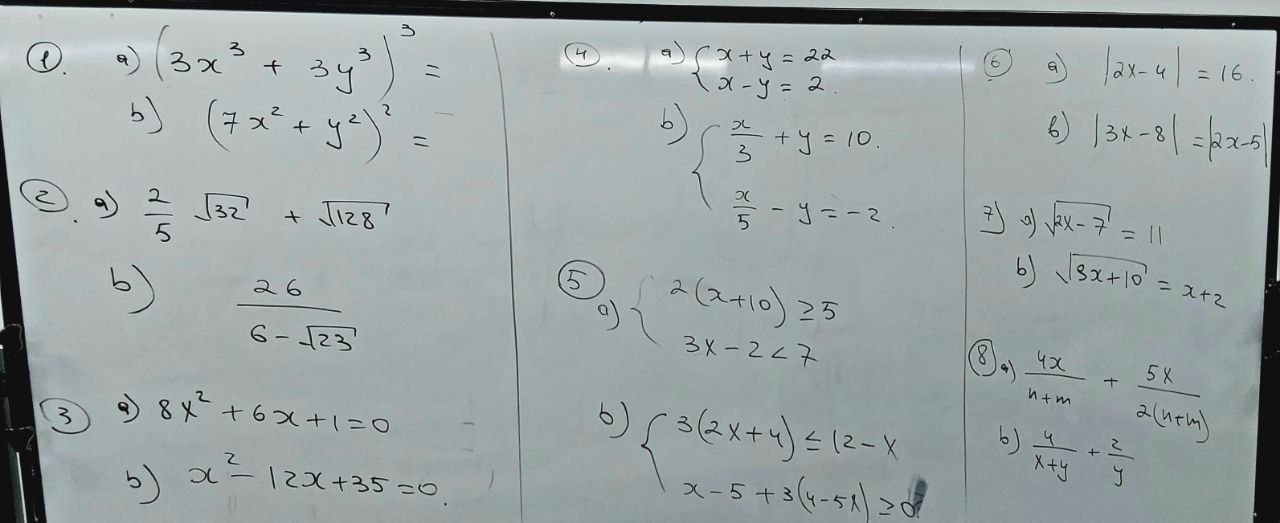 ①. a) (3x³ + 3y³)³ =
b) (7x² + y²)² =
②. a) 2/5 √32 + √128
b) 26/(6-√23)
③ a) 8x² + 6x + 1 = 0
b) x² - 12x + 35 = 0.
④. a) { x + y = 22
x - y = 2.
b) { x/3 + y = 10.
x/5 - y = -2.
⑤ a) { 2(x+10) ≥ 5
3x - 2 < 7
b) { 3(2x+4) ≤ 12 - x
x - 5 + 3(4-5x) ≥ 0
⑥ a) |2x-4| = 16.
b) |3x-8| = |2x-5|
7) a) √(2x-7) = 11
b) √(8x+10) = x+2
⑧ a) 4x/(n+m) + 5x/(2(n+m))
b) 4/(x+y) + 2/y